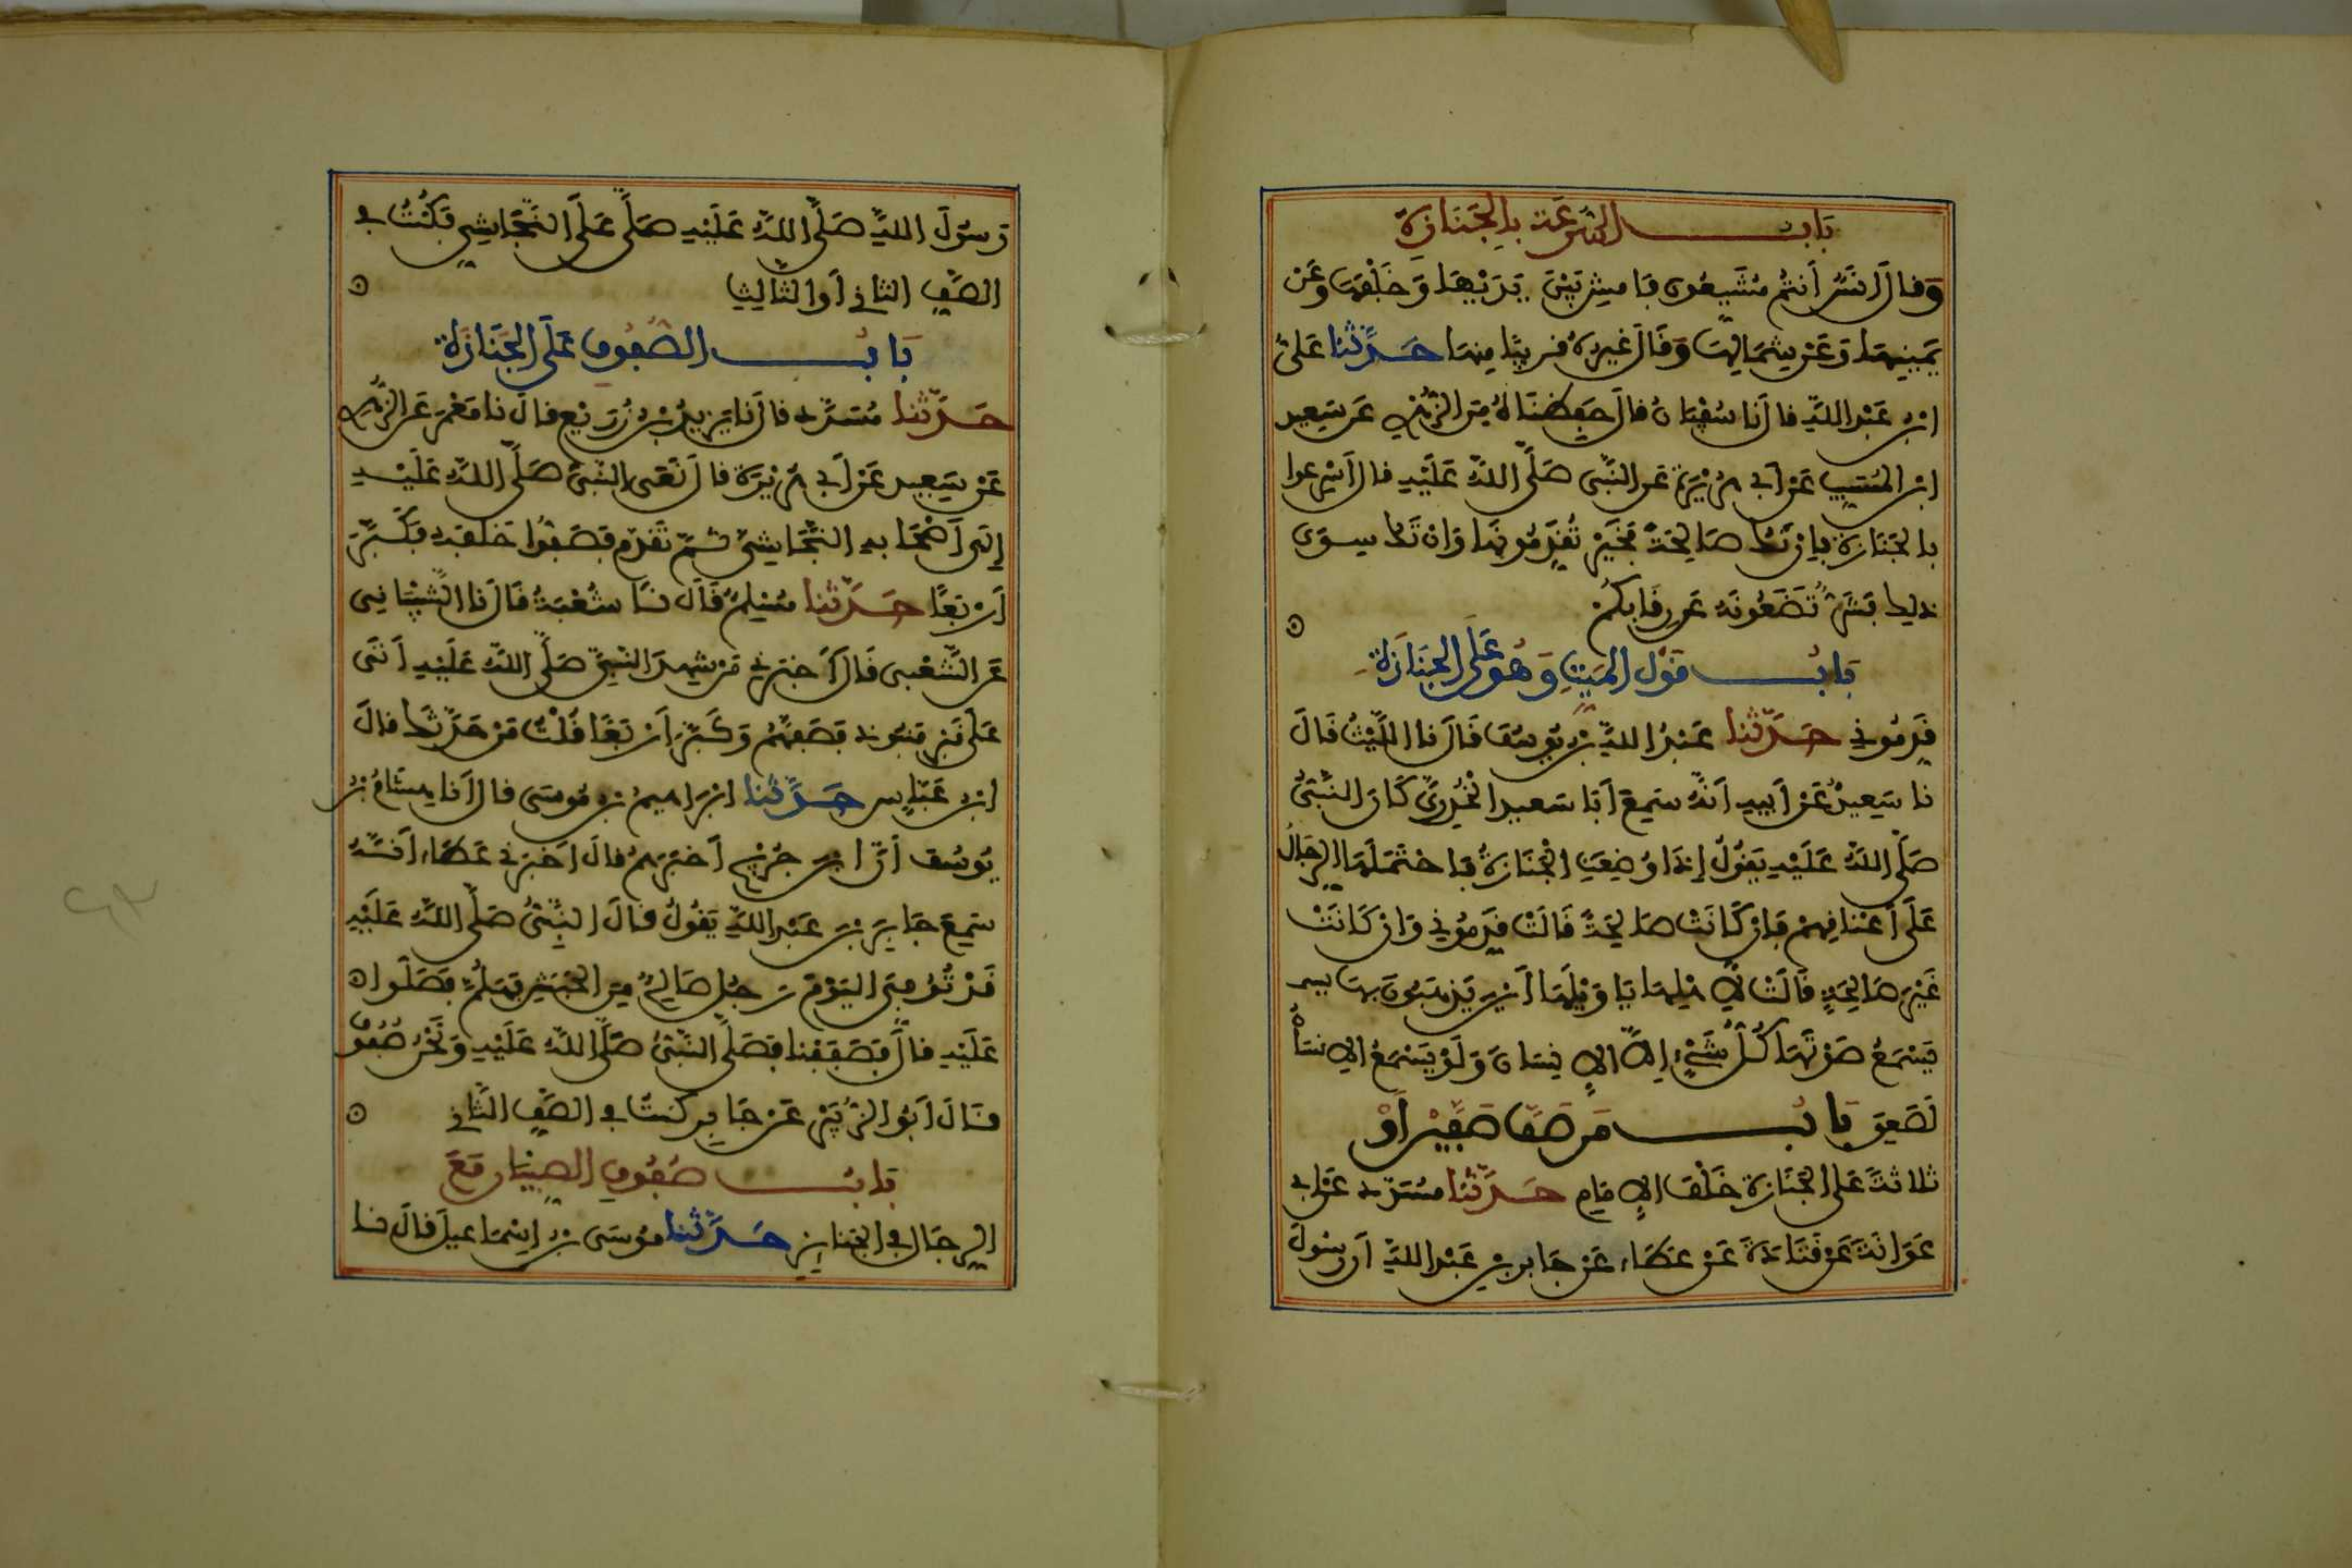 بَابُ السُّرْعَةِ بِالْجَنَازَةِ
وَقَالَ أَنَسٌ أَنْتُمْ مُشَيِّعُونَ فَامْشِ بَيْنَ يَدَيْهَا وَخَلْفَهَا وَعَنْ
يَمِينِهَا وَعَنْ شِمَالِهَا وَقَالَ غَيْرُهُ قَرِيبًا مِنْهَا حَدَّثَنَا عَلِيُّ
ابْنُ عَبْدِ اللَّهِ قَالَ نَا سُفْيَانُ قَالَ حَفِظْنَاهُ مِنَ الزُّهْرِيِّ عَنْ سَعِيدِ
ابْنِ الْمُسَيِّبِ عَنْ أَبِي هُرَيْرَةَ عَنِ النَّبِيِّ صَلَّى اللَّهُ عَلَيْهِ قَالَ أَسْرِعُوا
بِالْجَنَازَةِ فَإِنْ تَكُ صَالِحَةً فَخَيْرٌ تُقَدِّمُونَهَا وَإِنْ تَكُ سِوَى
ذَلِكَ فَشَرٌّ تَضَعُونَهُ عَنْ رِقَابِكُمْ
بَابُ قَوْلِ الْمَيِّتِ وَهُوَ عَلَى الْجَنَازَةِ
قَدِّمُونِي حَدَّثَنَا عَبْدُ اللَّهِ بْنُ يُوسُفَ قَالَ نَا اللَّيْثُ قَالَ
نَا سَعِيدٌ عَنْ أَبِيهِ أَنَّهُ سَمِعَ أَبَا سَعِيدٍ الْخُدْرِيَّ كَانَ النَّبِيُّ
صَلَّى اللَّهُ عَلَيْهِ يَقُولُ إِذَا وُضِعَتِ الْجَنَازَةُ فَاحْتَمَلَهَا الرِّجَالُ
عَلَى أَعْنَاقِهِمْ فَإِنْ كَانَتْ صَالِحَةً قَالَتْ قَدِّمُونِي وَإِنْ كَانَتْ
غَيْرَ صَالِحَةٍ قَالَتْ لِأَهْلِهَا يَا وَيْلَهَا أَيْنَ يَذْهَبُونَ بِهَا
يَسْمَعُ صَوْتَهَا كُلُّ شَيْءٍ إِلَّا الْإِنْسَانَ وَلَوْ يَسْمَعُ الْإِنْسَانُ
لَصَعِقَ بَابُ مَنْ صَفَّ صَفَّيْنِ أَوْ
ثَلَاثَةً عَلَى الْجَنَازَةِ خَلْفَ الْإِمَامِ حَدَّثَنَا مُسَدَّدٌ عَنْ أَبِي
عَوَانَةَ عَنْ قَتَادَةَ عَنْ عَطَاءٍ عَنْ جَابِرِ بْنِ عَبْدِ اللَّهِ أَنَّ رَسُولَ
رَسُولَ اللَّهِ صَلَّى اللَّهُ عَلَيْهِ صَلَّى عَلَى النَّجَاشِيِّ فَكُنْتُ فِي
الصَّفِّ الثَّانِي أَوِ الثَّالِثِ
بَابُ الصُّفُوفِ عَلَى الْجَنَازَةِ
حَدَّثَنَا مُسَدَّدٌ قَالَ نَا يَزِيدُ بْنُ زُرَيْعٍ قَالَ نَا مَعْمَرٌ عَنِ الزُّهْرِيِّ
عَنْ سَعِيدٍ عَنْ أَبِي هُرَيْرَةَ قَالَ نَعَى النَّبِيُّ صَلَّى اللَّهُ عَلَيْهِ
إِلَى أَصْحَابِهِ النَّجَاشِيَّ ثُمَّ تَقَدَّمَ فَصَفُّوا خَلْفَهُ فَكَبَّرَ
أَرْبَعًا حَدَّثَنَا مُسْلِمٌ قَالَ نَا شُعْبَةُ قَالَ نَا الشَّيْبَانِي
عَنِ الشَّعْبِي قَالَ أَخْبَرَنِي مَنْ شَهِدَ النَّبِيَّ صَلَّى اللَّهُ عَلَيْهِ أَتَى
عَلَى قَبْرٍ مَنْبُوذٍ فَصَفَّهُمْ وَكَبَّرَ أَرْبَعًا قُلْتُ مَنْ حَدَّثَكَ قَالَ
ابْنُ عَبَّاسٍ حَدَّثَنَا إِبْرَاهِيمُ بْنُ مُوسَى قَالَ أَنَا هِشَامُ بْنُ
يُوسُفَ أَنَّ ابْنَ جُرَيْجٍ أَخْبَرَهُمْ قَالَ أَخْبَرَنِي عَطَاءٌ أَنَّهُ
سَمِعَ جَابِرَ بْنَ عَبْدِ اللَّهِ يَقُولُ قَالَ النَّبِيُّ صَلَّى اللَّهُ عَلَيْهِ
قَدْ تُوُفِّيَ الْيَوْمَ رَجُلٌ صَالِحٌ مِنَ الْحَبَشِ فَهَلُمَّ فَصَلُّوا
عَلَيْهِ قَالَ فَصَفَفْنَا فَصَلَّى النَّبِيُّ صَلَّى اللَّهُ عَلَيْهِ وَنَحْنُ صُفُوفٌ
قَالَ أَبُو الزُّبَيْرِ عَنْ جَابِرٍ كُنْتُ فِي الصَّفِّ الثَّانِي
بَابُ صُفُوفِ الصِّبْيَانِ مَعَ
الرِّجَالِ فِي الْجَنَائِزِ حَدَّثَنَا مُوسَى بْنُ إِسْمَاعِيلَ قَالَ نَا